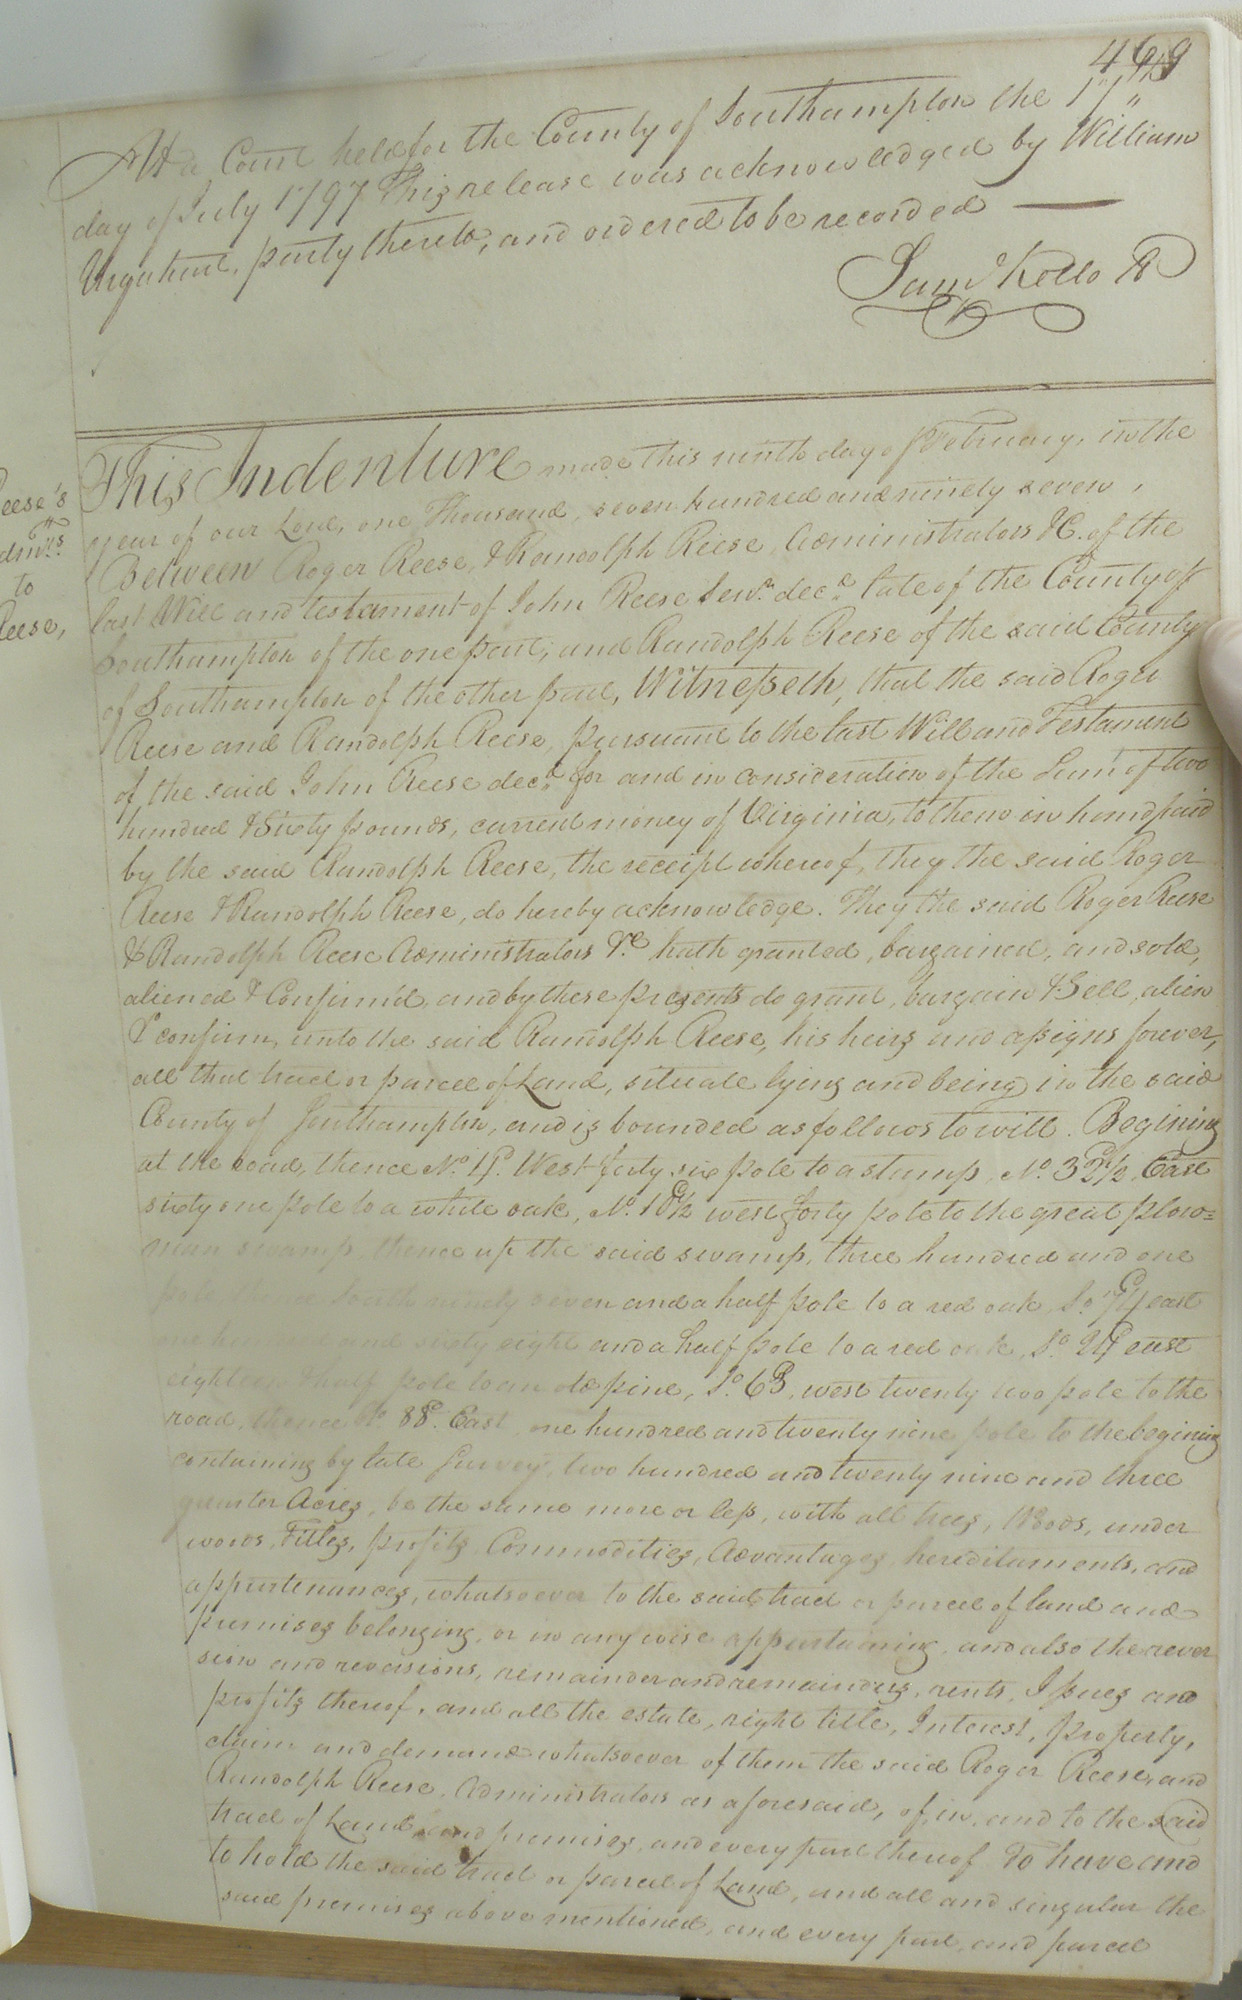 469
At a Court held for the County of Southampton the 17th
day of July 1797 This release was acknowledged by William
Urquhart, party thereto, and ordered to be recorded
Saml Kello
This Indenture made this ninth day of February, in the
year of our Lord, one Thousand, seven hundred and ninety seven,
Between Roger Reese, & Randolph Reese, Administrators &C. of the
last Will and testament of John Reese Senr. decd. late of the County of
Southampton of the one part; and Randolph Reese of the said County
of Southampton of the other part, Witnesseth, that the said Roger
Reese and Randolph Reese, pursuant to the last Will and Testament
of the said John Reese decd. for and in consideration of the Sum of two
hundred & Sixty pounds, current money of Virginia, to them in hand paid
by the said Randolph Reese, the receipt whereof, they the said Roger
Reese & Randolph Reese, do hereby acknowledge. They the said Roger Reese
& Randolph Reese Administrators &c. hath granted, bargained, and sold,
aliened & Confirm'd and by these presents do grant, bargain & Sell, alien
& confirm, unto the said Randolph Reese, his heirs and assigns forever,
all that tract or parcel of Land, situate lying and being in the said
County of Southampton, and is bounded as follows to will. Begining
at the road, thence No. West forty six pole to a stump, No. 32 1/2 East
sixty one pole to a white oak, No. 10 1/2 west forty pole to the great plow=
man swamp, thence up the said swamp, three hundred and one
pole thence South ninety seven and a half pole to a red oak, So. east
one hundred and sixty eight and a half pole to a red oak, So. east
eighteen & half pole to an old pine, So. west twenty two pole to the
road, thence 88d. East, one hundred and twenty nine pole to the begining
containing by late Survey, two hundred and twenty nine and three
quarter Acres, be the same more or less, with all trees, Woods, under
woods, Titles, profits, Commodities, Advantages, hereditaments, and
appurtenances, whatsoever to the said tract or parcel of land and
premises belonging, or in any wise appurtaining, and also the rever
sion and reversions, remainder and remainders, rents, Issues and
profits thereof, and all the estate, right title, Interest, property,
claim and demand whatsoever of them the said Roger Reese, and
Randolph Reese, Administrators as aforesaid, of, in, and to the said
tract of Land and premises, and every part thereof To have and
to hold the said tract or parcel of Land, and all and singular the
said premises above mentioned, and every part, and parcel
eese's
dmrs.
to
eese,